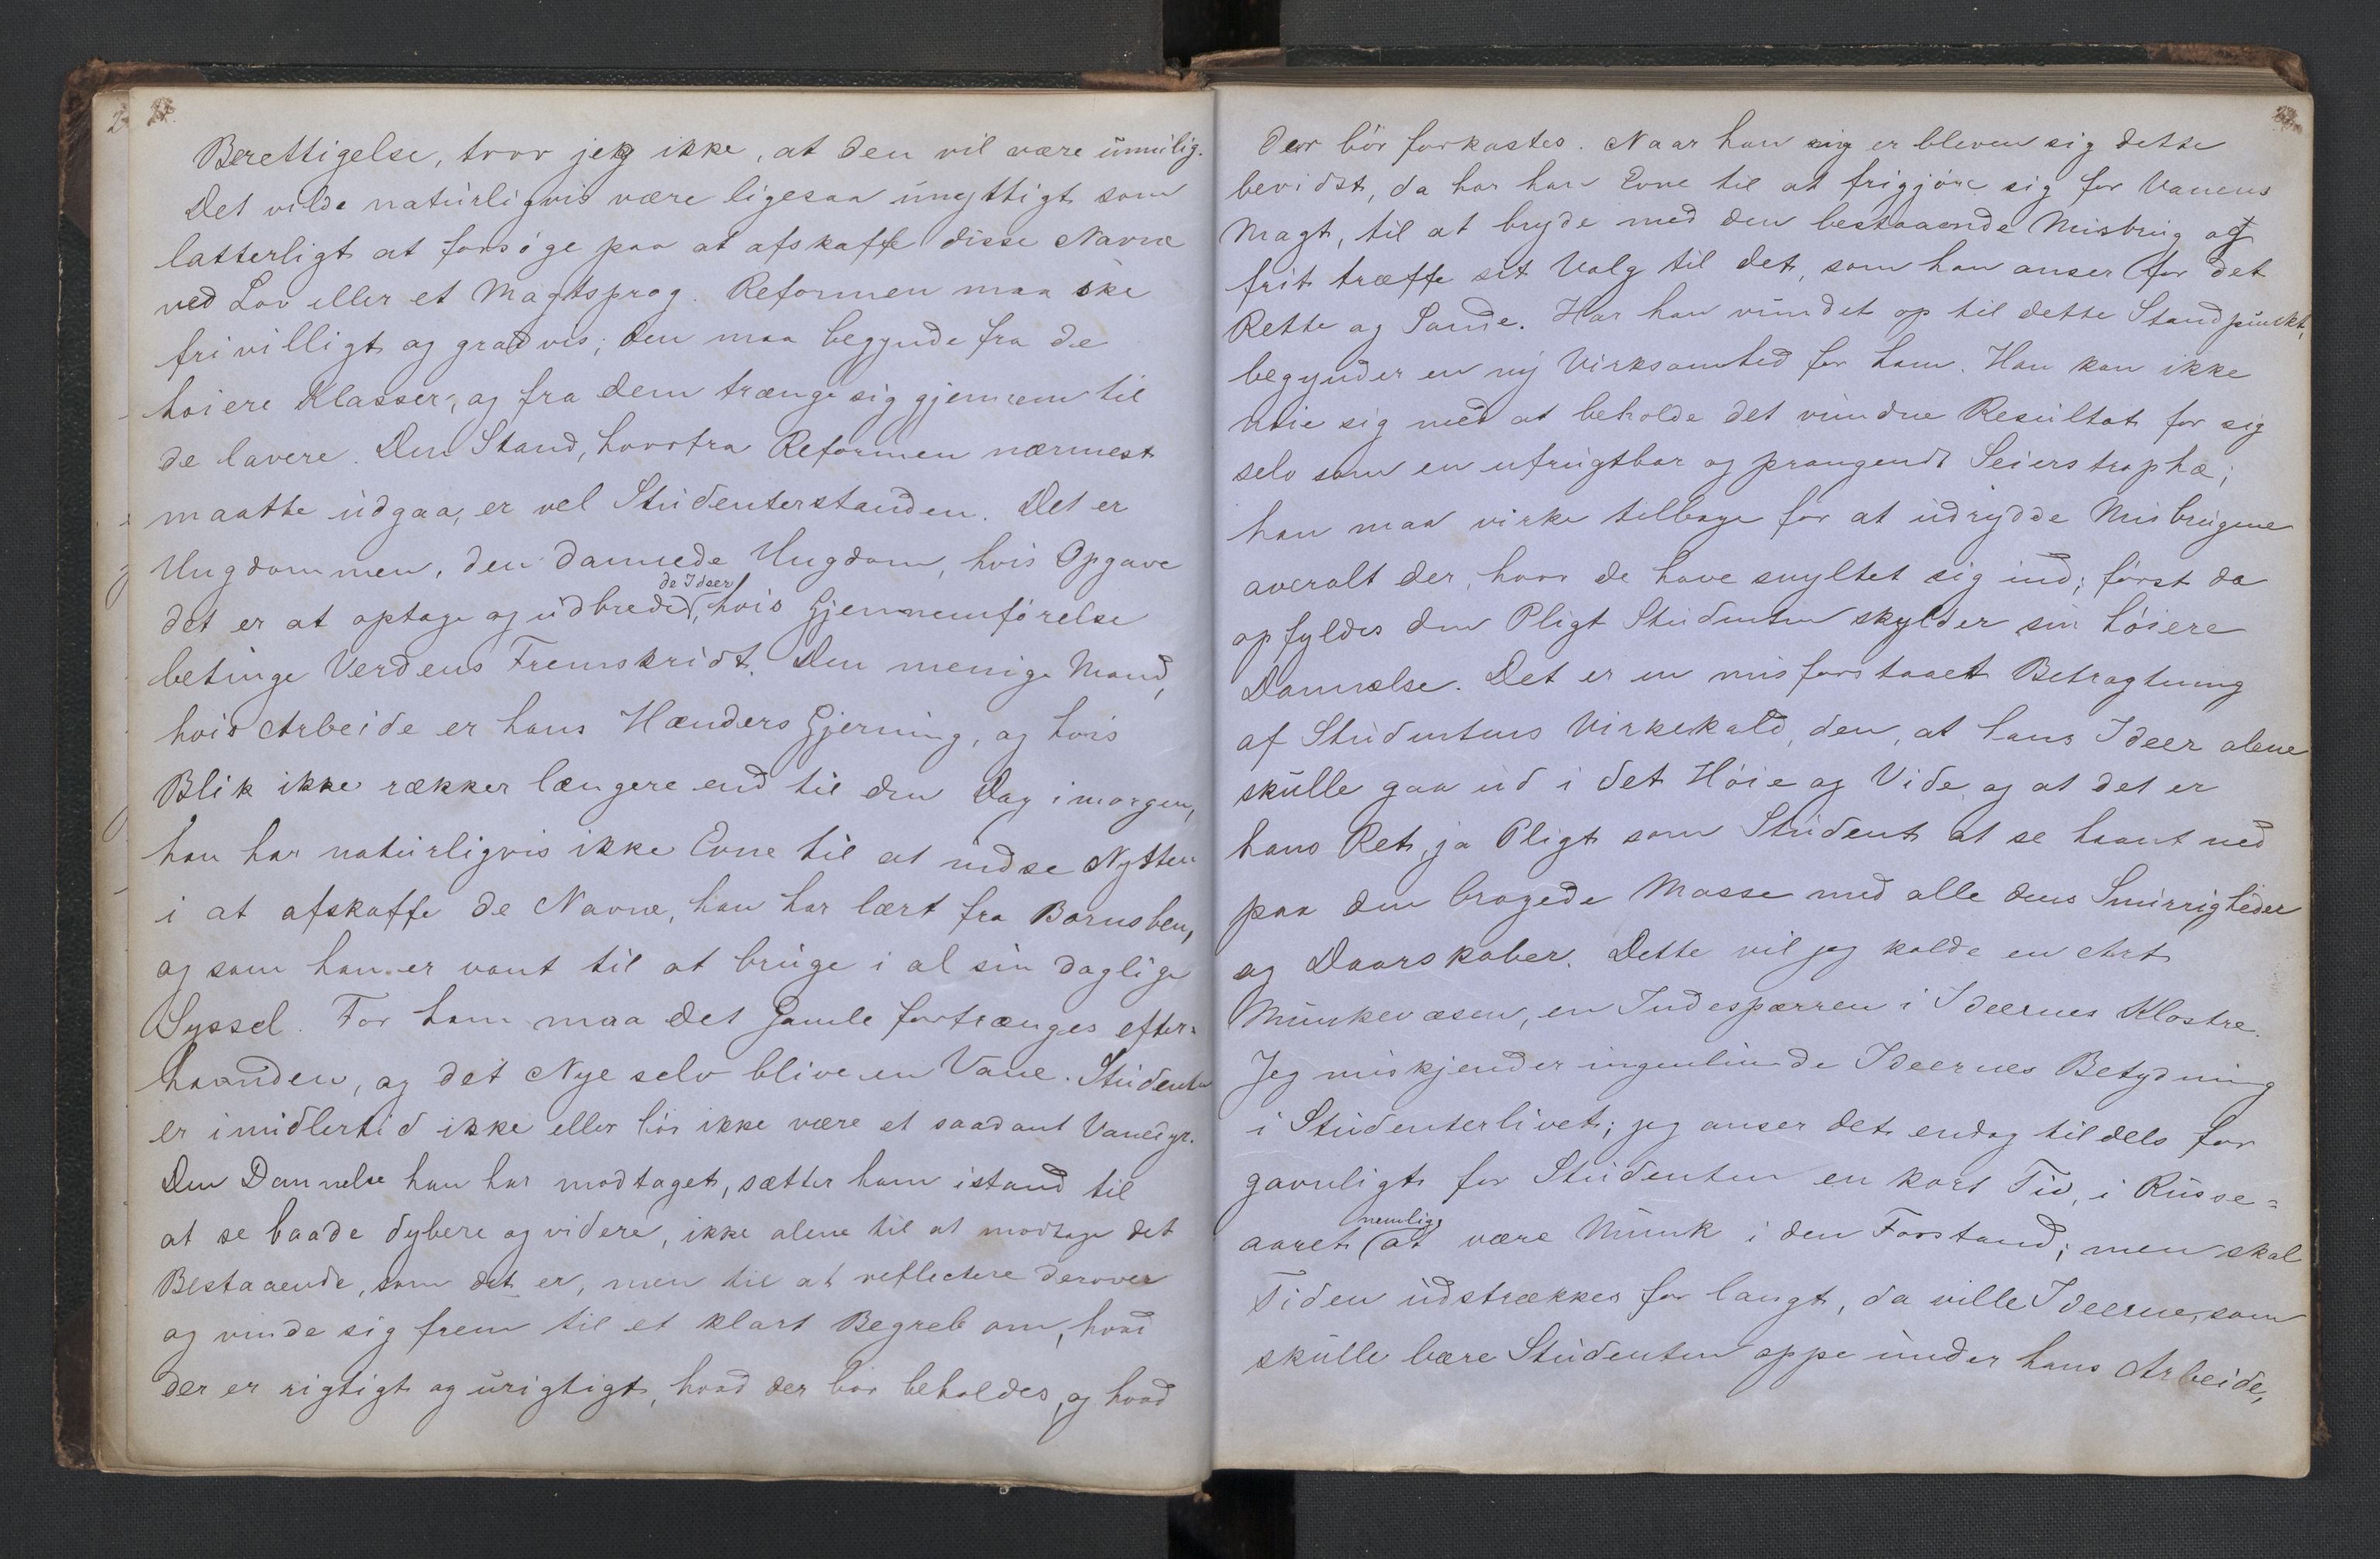 Berettigelse, tror jeg ikke, at den vil være umulig.
Det vilde naturligvis være ligesaa unyttigt som
latterligt at forsøge paa at afskaffe disse Navne
ved Lov eller et Magtsprog. Reformen maa ske
frivilligt og gradvis; den maa begynde fra de
høiere Klasser, og fra dem trænge sig gjennem til
de lavere. Den Stand, hvorfra Reformen nærmest
maatte udgaa, er vel Studenterstanden. Det er
Ungdommen, den dannede Ungdom, hvis Opgave
det er at optage og udbrede de Ideer, hvis Gjennemførelse
betinge Verdens Fremskridt. Den menige Mand,
hvis Arbeide er hans Hænders Gjerning, og hvis
Blik ikke rækker længere end til den Dag imorgen,
han har naturligvis ikke Evne til at indse Nytten
i at afskaffe de Navne, han har lært fra Barnsben,
og som han er vant til at bruge i al sin daglige
Syssel. For ham maa det Gamle fortrænges efter-
haanden, og det Nye selv blive en Vane. Studenten
er imidlertid ikke eller bør ikke være et saadant Vanedyr.
Den Dannelse han har modtaget, sætter ham istand til
at se baade dybere og videre, ikke alene til at modtage det
Bestaaende, som det er, men til at reflectere derover
og vinde sig frem til et klart Begreb om, hvad
der er rigtigt og urigtigt, hvad der bør beholdes, og hvad
der bør forkastes. Naar han er bleven sig dette
bevidst, da har han Evne til at frigjøre sig for Vanens
Magt, til at bryde med den bestaaende Misbrug og
frit træffe sit Valg til det, som han anser for det
Rette og Sande. Har han vundet op til dette Standpunkt,
begynder en ny Virksomhed for ham. Han kan ikke
nøie sig med at beholde det vundne Resultat for sig
selv som en ufrugtbar og prangende Seierstrophæ;
han maa virke tilbage for at udrydde Misbrugene
overalt der, hvor de have snyltet sig ind; først da
opfyldes den Pligt Studenten skylder sin høiere
Dannelse. Det er en misforstaaet Betragtning
af Studentens Virkekald, den, at hans Ideer alene
skulle gaa ud i det Høie og Vide og at det er
hans Ret, ja Pligt som Student at se haant ned
paa den brogede Masse med alle dens Smurrigheder
og Daarskaber. Dette vil jeg kalde en Art
Munkevæsen, en Indespærren i Ideernes Klostre.
Jeg miskjender ingenlunde Ideernes Betydning
i Studenterlivet; jeg anser det endog tildels for
gavnligt for Studenten en kort Tid, i Russe-
aaret nemlig at være Munk i den Forstand; men skal
Tiden udstrækkes for langt, da ville Ideerne, som
skulle bære Studenten oppe under hans Arbeide,